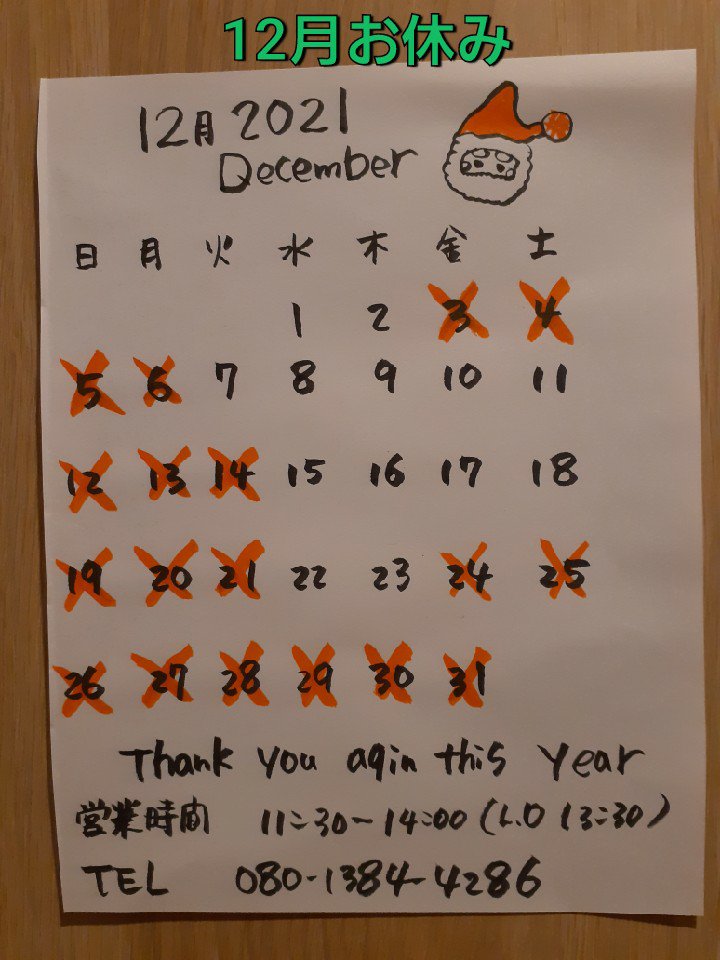 12月お休み
12月 2021
December
日 月 火 水 木 金 土
1 2 3 4
5 6 7 8 9 10 11
12 13 14 15 16 17 18
19 20 21 22 23 24 25
26 27 28 29 30 31
Thank you agin this Year
営業時間 11:30~14:00 (L.O 13:30)
TEL 080-1384-4286